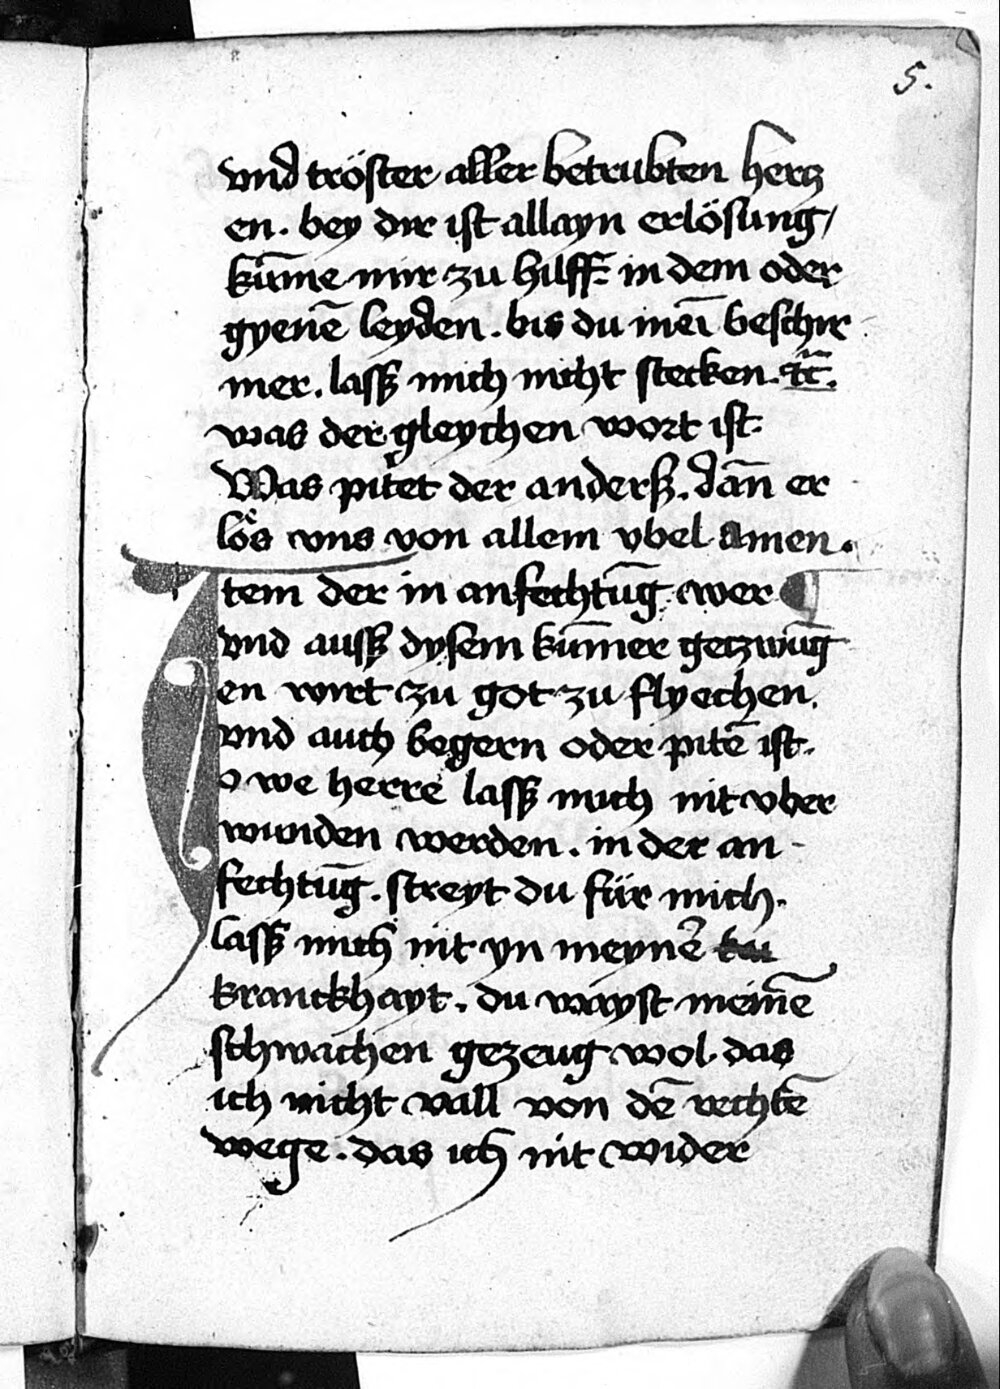 5.
vnd tröster aller betrubten hertz
en. bey dir ist allayn erlösung/
kūme mir zu hilff. in dem oder
gyenē leyden. bis du meī beschir
mer. lasß mich nicht stecken. ꝛc̄.
was der gleychen wort ist.
Was pitet der anderß. dañ er
lös vns von allem vbel amen.
Item der in anfechtūg wer
vnd ausß dysem kūmer getzwūg
en wirt zu got zu flyechen.
vnd auch begern oder pitē ist.
o we herre lasß mich nit vber
wunden werden. in der an-
fechtūg. streyt du für mich.
lasß mich nit yn meynē
kranckhayt. du wayst meinē
schwachen gezeug wol. das
ich nicht vall von dē rechtē
wege. das ich nit wider